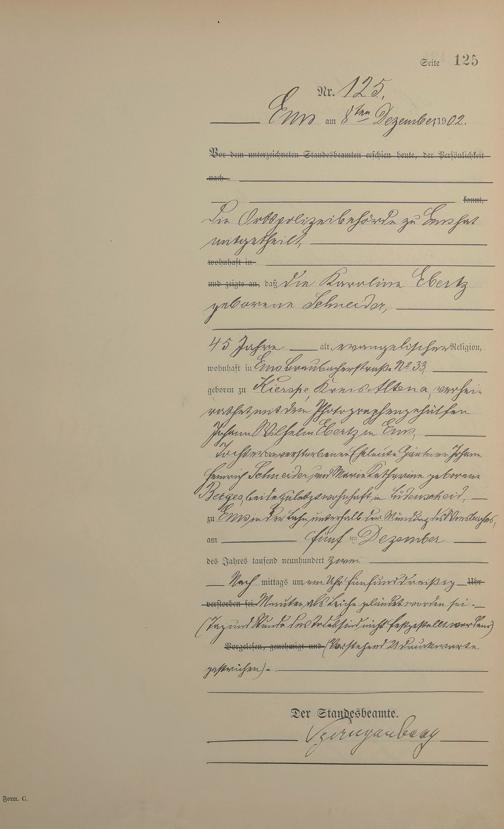 Seite 125
Nr. 125.
Ems am 8ten Dezember 1902.
Vor dem unterzeichneten Standesbeamten erschien heute, der Persönlichkeit
nach
kannt,
Die Ortspolizeibehörde zu Ems hat
mitgetheilt,
wohnhaft in
und zeigte an, daß die Karoline Ebertz
geborene Schneider,
45 Jahre alt, evangelischer Religion,
wohnhaft in Ems Braubacherstraße No 33,
geboren zu Kreis Altena, verhei-
rathet mit dem Photographengehülfen
Johann Wilhelm Ebertz in Ems,
Tochter der verstorbenen Eheleute Johann
Heinrich Schneider und Maria Katharina geborene
beide zuletzt wohnhaft in Lüdenscheid,
zu Ems in der Lahn, unterhalb der Mündung des
am fünften Dezember
des Jahres tausend neunhundert zwei
Nach mittags um Uhr fünfunddreißig Uhr
verstorben sei Minuten, als Leiche geländet worden sei.
(Tag und Stunde des Todes sind nicht festgestellt worden)
Vorgelesen, genehmigt und (Vorstehend Druckworte
gestrichen).
Der Standesbeamte.
Form. C.